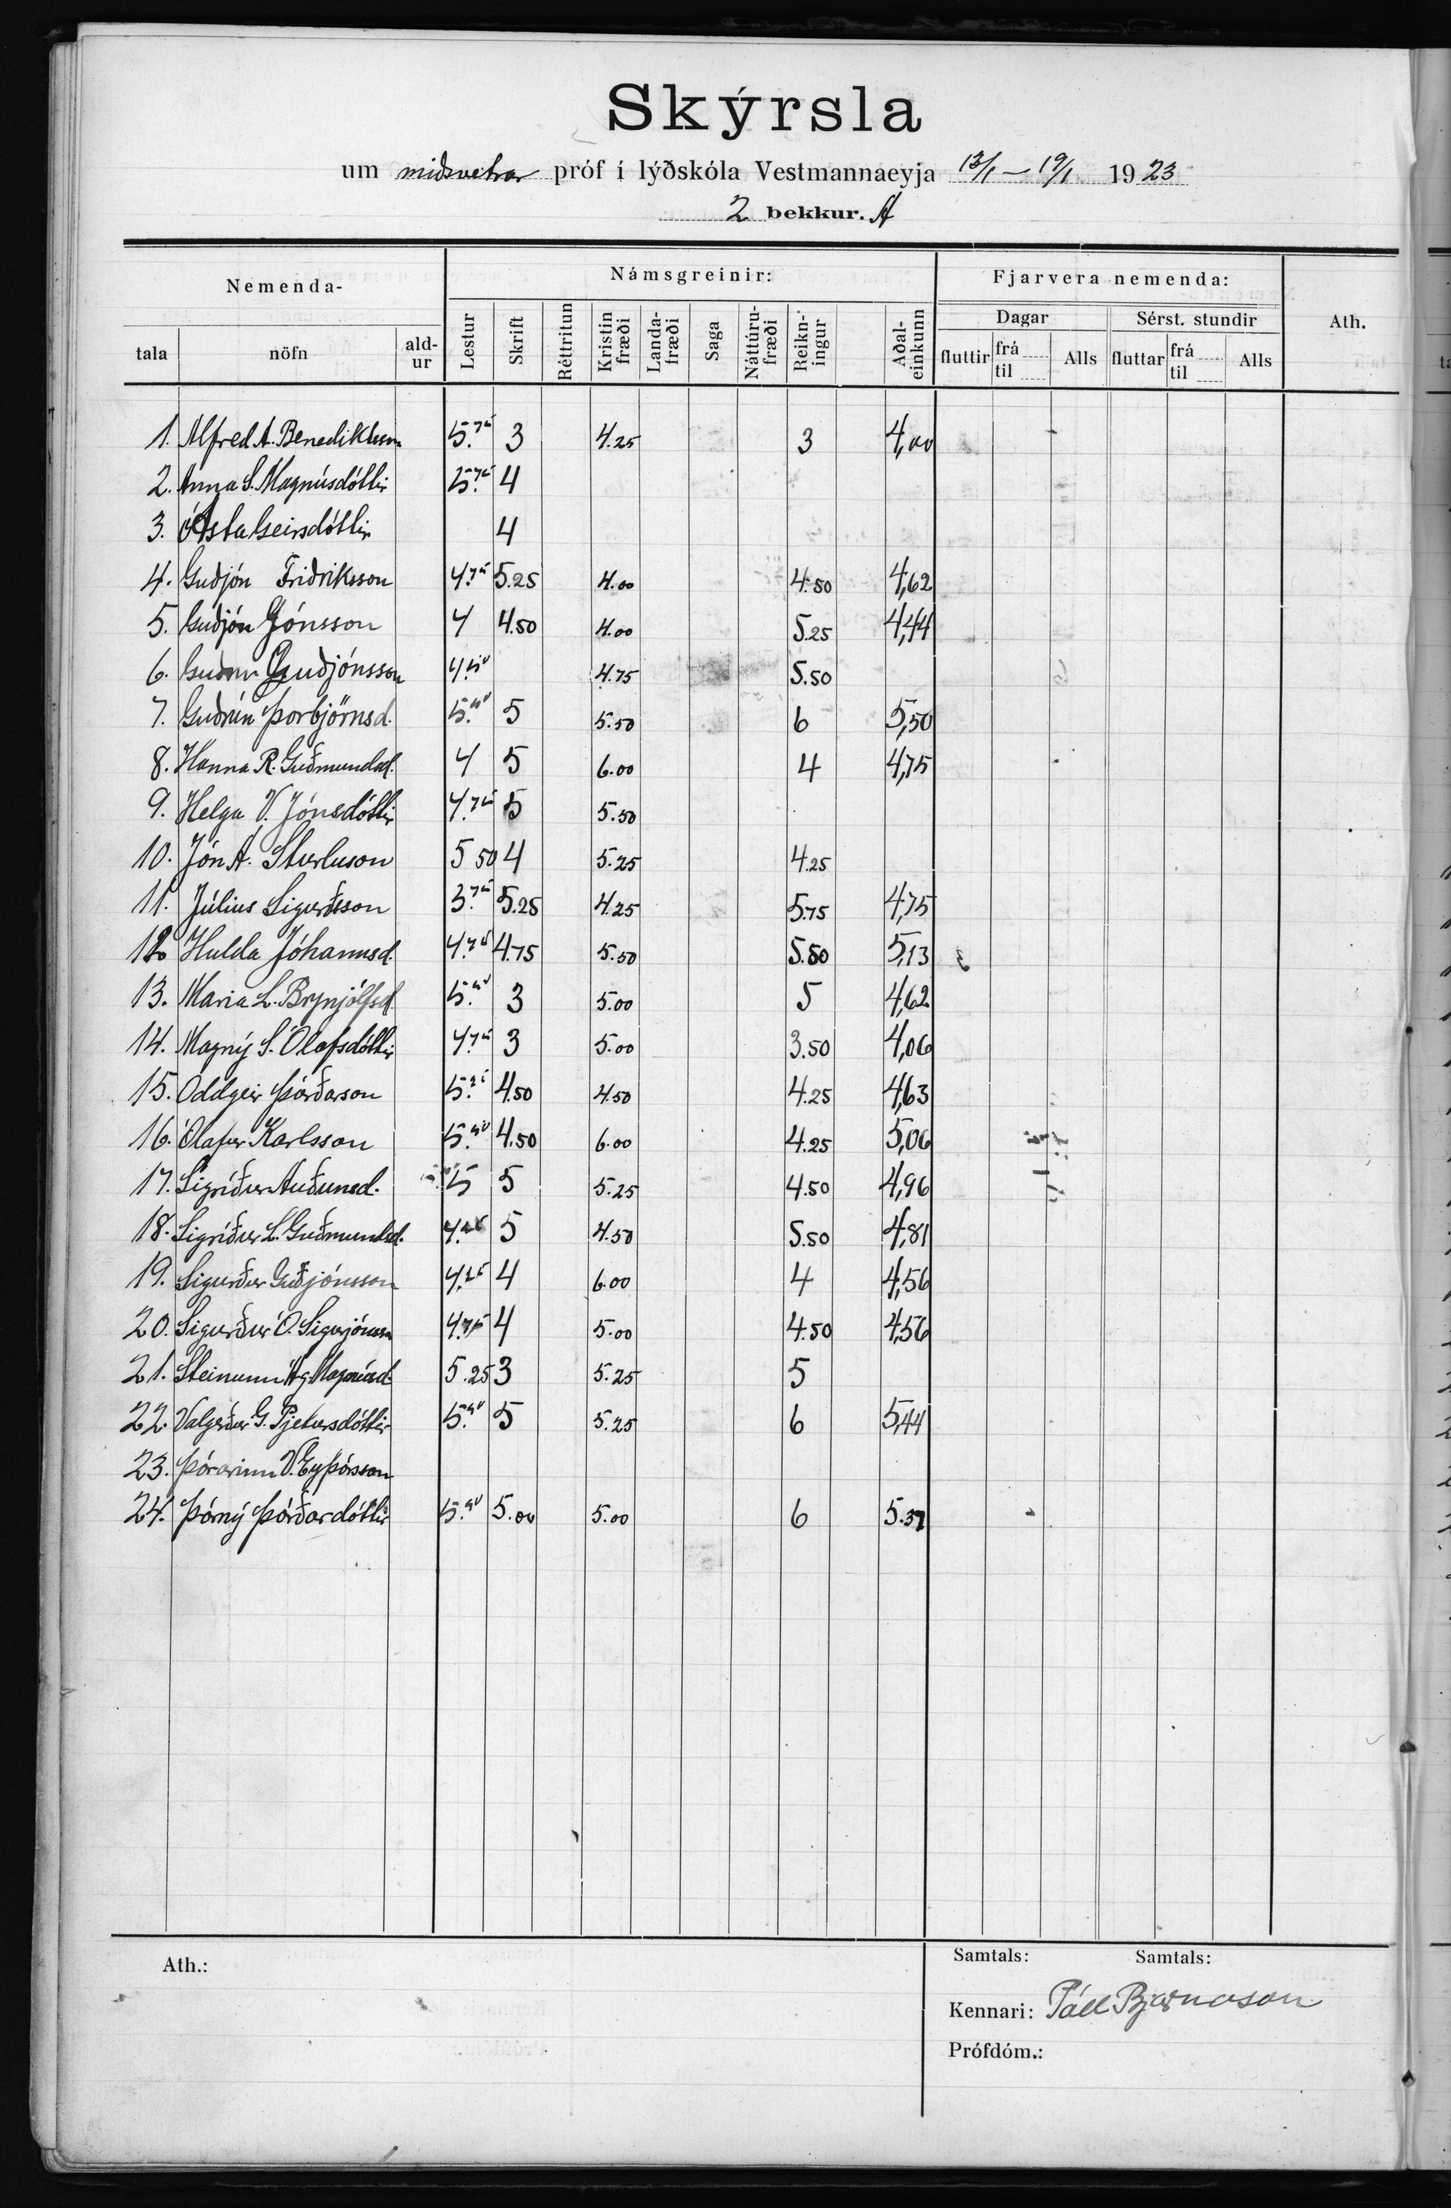 Skýrsla
um miðsvetrar próf í lýðskóla Vestmannaeyja 13/1 – 19/1 1923
2 bekkur. A
Nemenda- Námsgreinir: Fjarvera nemenda:
Dagar Sérst. stundir Ath.
tala nöfn ald-ur Lestur Skrift Réttritun Kristin fræði Landa-fræði Saga Náttúru-fræði Reikn-ingur Aðal-einkunn fluttir frá til Alls fluttar frá til Alls
1. Alfred A. Benediktsson 5.75 3 4.25 3 4,00
2. Anna S. Magnúsdóttir 5.75 4
3. Ásta Geirsdóttir 4
4. Guðjón Friðriksson 4.75 5.25 4.00 4.50 4,62
5. Guðjón Jónsson 4 4.50 4.00 5.25 4,44
6. Guðjónsson 4.50 4.75 5.50
7. Guðrún Þorbjörnsd. 5.50 5 5.50 6 5,50
8. Hanna R. Guðmundsd. 4 5 6.00 4 4,75
9. Helga V. Jónsdóttir 4.75 5 5.50
10. Jón Á. Sturluson 5 50 4 5.25 4.25
11. Júlíus Sigurðsson 3.75 5.25 4.25 5.75 4,75
12 Hulda Jóhannsd. 4.75 4.75 5.50 5.50 5,13
13. Maria L. Brynjólfsd. 5.50 3 5.00 5 4,62
14. Magný S. Ólafsdóttir 4.75 3 5.00 3.50 4,06
15. Oddgeir Þórðarson 5.25 4.50 4.50 4.25 4,63
16. Ólafur Karlsson 5.50 4.50 6.00 4.25 5,06
17. Sigríður Auðunsd. 5 5 5.25 4.50 4,96
18. Sigríður L. Guðmundsd. 4.25 5 4.50 5.50 4,81
19. Sigurður Guðjónsson 4.25 4 6.00 4 4,56
20. Sigurður Ó. Sigurjónsson 4.75 4 5.00 4.50 4,56
21. Steinunn Ág. Magnúsd. 5.25 3 5.25 5
22. Valgerður G. Pjetursdóttir 5.50 5 5.25 6 5,44
23. Þórarinn V. Eyþórsson
24. Þórný Þórðardóttir 5.50 5.00 5.00 6 5.37
Ath.:
Samtals: Samtals:
Kennari: Páll Bjarnason
Prófdóm.: